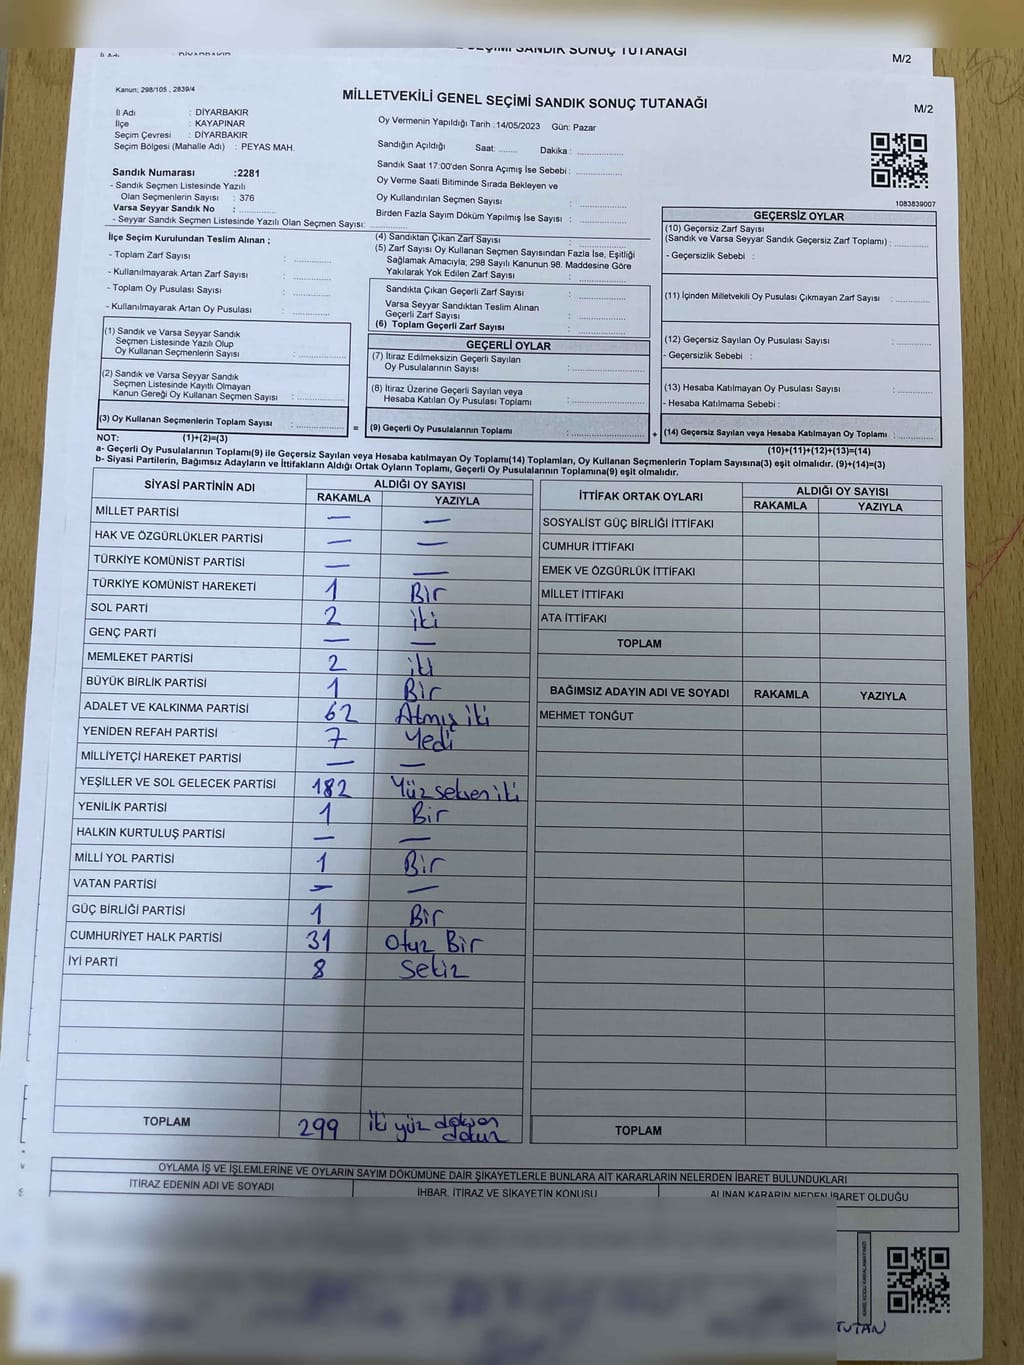 M/2
Kanun; 298/105 , 2839/4
MİLLETVEKİLİ GENEL SEÇİMİ SANDIK SONUÇ TUTANAĞI
M/2
İl Adı : DİYARBAKIR
İlçe : KAYAPINAR
Seçim Çevresi : DİYARBAKIR
Seçim Bölgesi (Mahalle Adı) : PEYAS MAH.
Oy Vermenin Yapıldığı Tarih :14/05/2023 Gün: Pazar
Sandığın Açıldığı Saat: Dakika :
Sandık Saat 17:00'den Sonra Açımış İse Sebebi :
Oy Verme Saati Bitiminde Sırada Bekleyen ve
Oy Kullandırılan Seçmen Sayısı :
Birden Fazla Sayım Döküm Yapılmış İse Sayısı :
1083839007
Sandık Numarası :2281
- Sandık Seçmen Listesinde Yazılı
Olan Seçmenlerin Sayısı : 376
Varsa Seyyar Sandık No :
- Seyyar Sandık Seçmen Listesinde Yazılı Olan Seçmen Sayısı:
İlçe Seçim Kurulundan Teslim Alınan ;
- Toplam Zarf Sayısı :
- Kullanılmayarak Artan Zarf Sayısı :
- Toplam Oy Pusulası Sayısı :
- Kullanılmayarak Artan Oy Pusulası :
(1) Sandık ve Varsa Seyyar Sandık
Seçmen Listesinde Yazılı Olup
Oy Kullanan Seçmenlerin Sayısı :
(2) Sandık ve Varsa Seyyar Sandık
Seçmen Listesinde Kayıtlı Olmayan
Kanun Gereği Oy Kullanan Seçmen Sayısı :
(3) Oy Kullanan Seçmenlerin Toplam Sayısı :
(4) Sandıktan Çıkan Zarf Sayısı :
(5) Zarf Sayısı Oy Kullanan Seçmen Sayısından Fazla İse, Eşitliği
Sağlamak Amacıyla; 298 Sayılı Kanunun 98. Maddesine Göre
Yakılarak Yok Edilen Zarf Sayısı :
Sandıkta Çıkan Geçerli Zarf Sayısı :
Varsa Seyyar Sandıktan Teslim Alınan
Geçerli Zarf Sayısı :
(6) Toplam Geçerli Zarf Sayısı :
GEÇERLİ OYLAR
(7) İtiraz Edilmeksizin Geçerli Sayılan
Oy Pusulalarının Sayısı :
(8) İtiraz Üzerine Geçerli Sayılan veya
Hesaba Katılan Oy Pusulası Toplamı :
= (9) Geçerli Oy Pusulalarının Toplamı :
GEÇERSİZ OYLAR
(10) Geçersiz Zarf Sayısı
(Sandık ve Varsa Seyyar Sandık Geçersiz Zarf Toplamı) :
- Geçersizlik Sebebi :
(11) İçinden Milletvekili Oy Pusulası Çıkmayan Zarf Sayısı :
(12) Geçersiz Sayılan Oy Pusulası Sayısı :
- Geçersizlik Sebebi :
(13) Hesaba Katılmayan Oy Pusulası Sayısı :
- Hesaba Katılmama Sebebi :
+ (14) Geçersiz Sayılan veya Hesaba Katılmayan Oy Toplamı :
NOT: (1)+(2)=(3)
(10)+(11)+(12)+(13)=(14)
a- Geçerli Oy Pusulalarının Toplamı(9) ile Geçersiz Sayılan veya Hesaba katılmayan Oy Toplamı(14) Toplamları, Oy Kullanan Seçmenlerin Toplam Sayısına(3) eşit olmalıdır. (9)+(14)=(3)
b- Siyasi Partilerin, Bağımsız Adayların ve İttifakların Aldığı Ortak Oyların Toplamı, Geçerli Oy Pusulalarının Toplamına(9) eşit olmalıdır.
SİYASİ PARTİNİN ADI ALDIĞI OY SAYISI
RAKAMLA YAZIYLA
MİLLET PARTİSİ — —
HAK VE ÖZGÜRLÜKLER PARTİSİ — —
TÜRKİYE KOMÜNİST PARTİSİ — —
TÜRKİYE KOMÜNİST HAREKETİ 1 Bir
SOL PARTİ 2 iki
GENÇ PARTİ — —
MEMLEKET PARTİSİ 2 iki
BÜYÜK BİRLİK PARTİSİ 1 Bir
ADALET VE KALKINMA PARTİSİ 62 Atmış iki
YENİDEN REFAH PARTİSİ 7 Yedi
MİLLİYETÇİ HAREKET PARTİSİ — —
YEŞİLLER VE SOL GELECEK PARTİSİ 182 Yüz seksen iki
YENİLİK PARTİSİ 1 Bir
HALKIN KURTULUŞ PARTİSİ — —
MİLLİ YOL PARTİSİ 1 Bir
VATAN PARTİSİ — —
GÜÇ BİRLİĞİ PARTİSİ 1 Bir
CUMHURİYET HALK PARTİSİ 31 Otuz Bir
İYİ PARTİ 8 Sekiz
TOPLAM 299 İki yüz doksan
dokuz
İTTİFAK ORTAK OYLARI ALDIĞI OY SAYISI
RAKAMLA YAZIYLA
SOSYALİST GÜÇ BİRLİĞİ İTTİFAKI
CUMHUR İTTİFAKI
EMEK VE ÖZGÜRLÜK İTTİFAKI
MİLLET İTTİFAKI
ATA İTTİFAKI
TOPLAM
BAĞIMSIZ ADAYIN ADI VE SOYADI RAKAMLA YAZIYLA
MEHMET TONĞUT
TOPLAM
OYLAMA İŞ VE İŞLEMLERİNE VE OYLARIN SAYIM DÖKÜMÜNE DAİR ŞİKAYETLERLE BUNLARA AİT KARARLARIN NELERDEN İBARET BULUNDUKLARI
İTİRAZ EDENİN ADI VE SOYADI İHBAR, İTİRAZ VE ŞİKAYETİN KONUSU ALINAN KARARIN NEDEN İBARET OLDUĞU
TUTAN